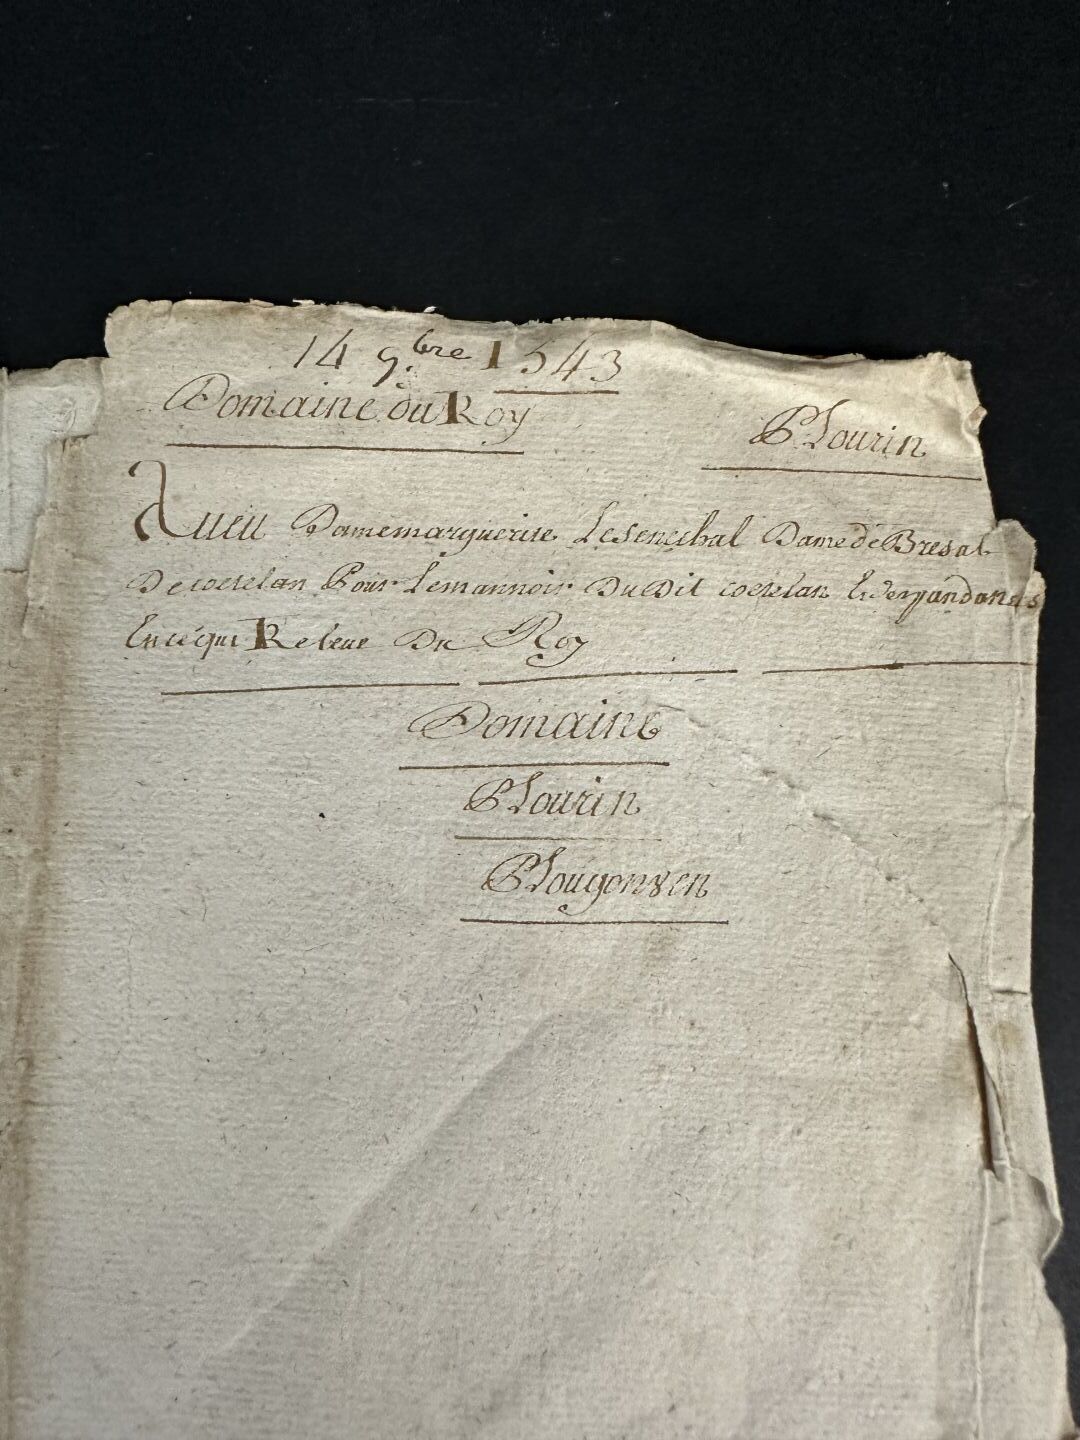 14 9.bre 1543
Domaine du Roy
Plourin
Aueu Dame marguerite Lesenechal Dame de Bresal
De coetelan Pour Lemannoir Du Dit coetelan Et dependances
En ce qui Releue Du Roy
Domaine
Plourin
Plougonven